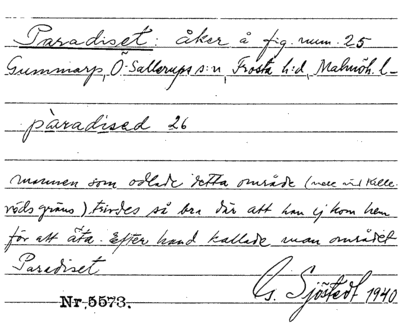 Paradiset: åker å fig. num. 25
Gummarp, Ö. Sallerups s:n, Frosta h:d, Malmöh. l-
paradised 26
mannen som odlade detta område (nere vid Kille-
röds gräns) trivdes så bra där att han ej kom hem
för att äta. Efter hand kallade man området
Paradiset
Nr. 5573. G. Sjöstedt 1940